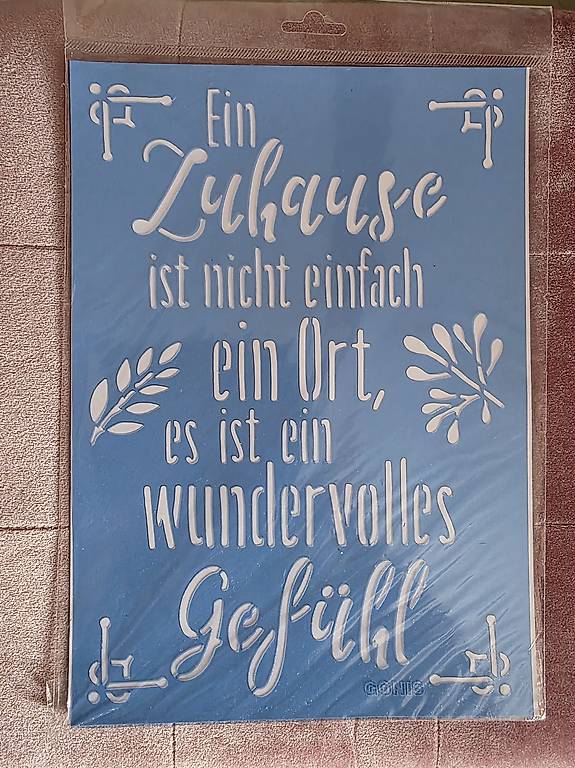 Ein
Zuhause
ist nicht einfach
ein Ort,
es ist ein
wundervolles
Gefühl
GONIS